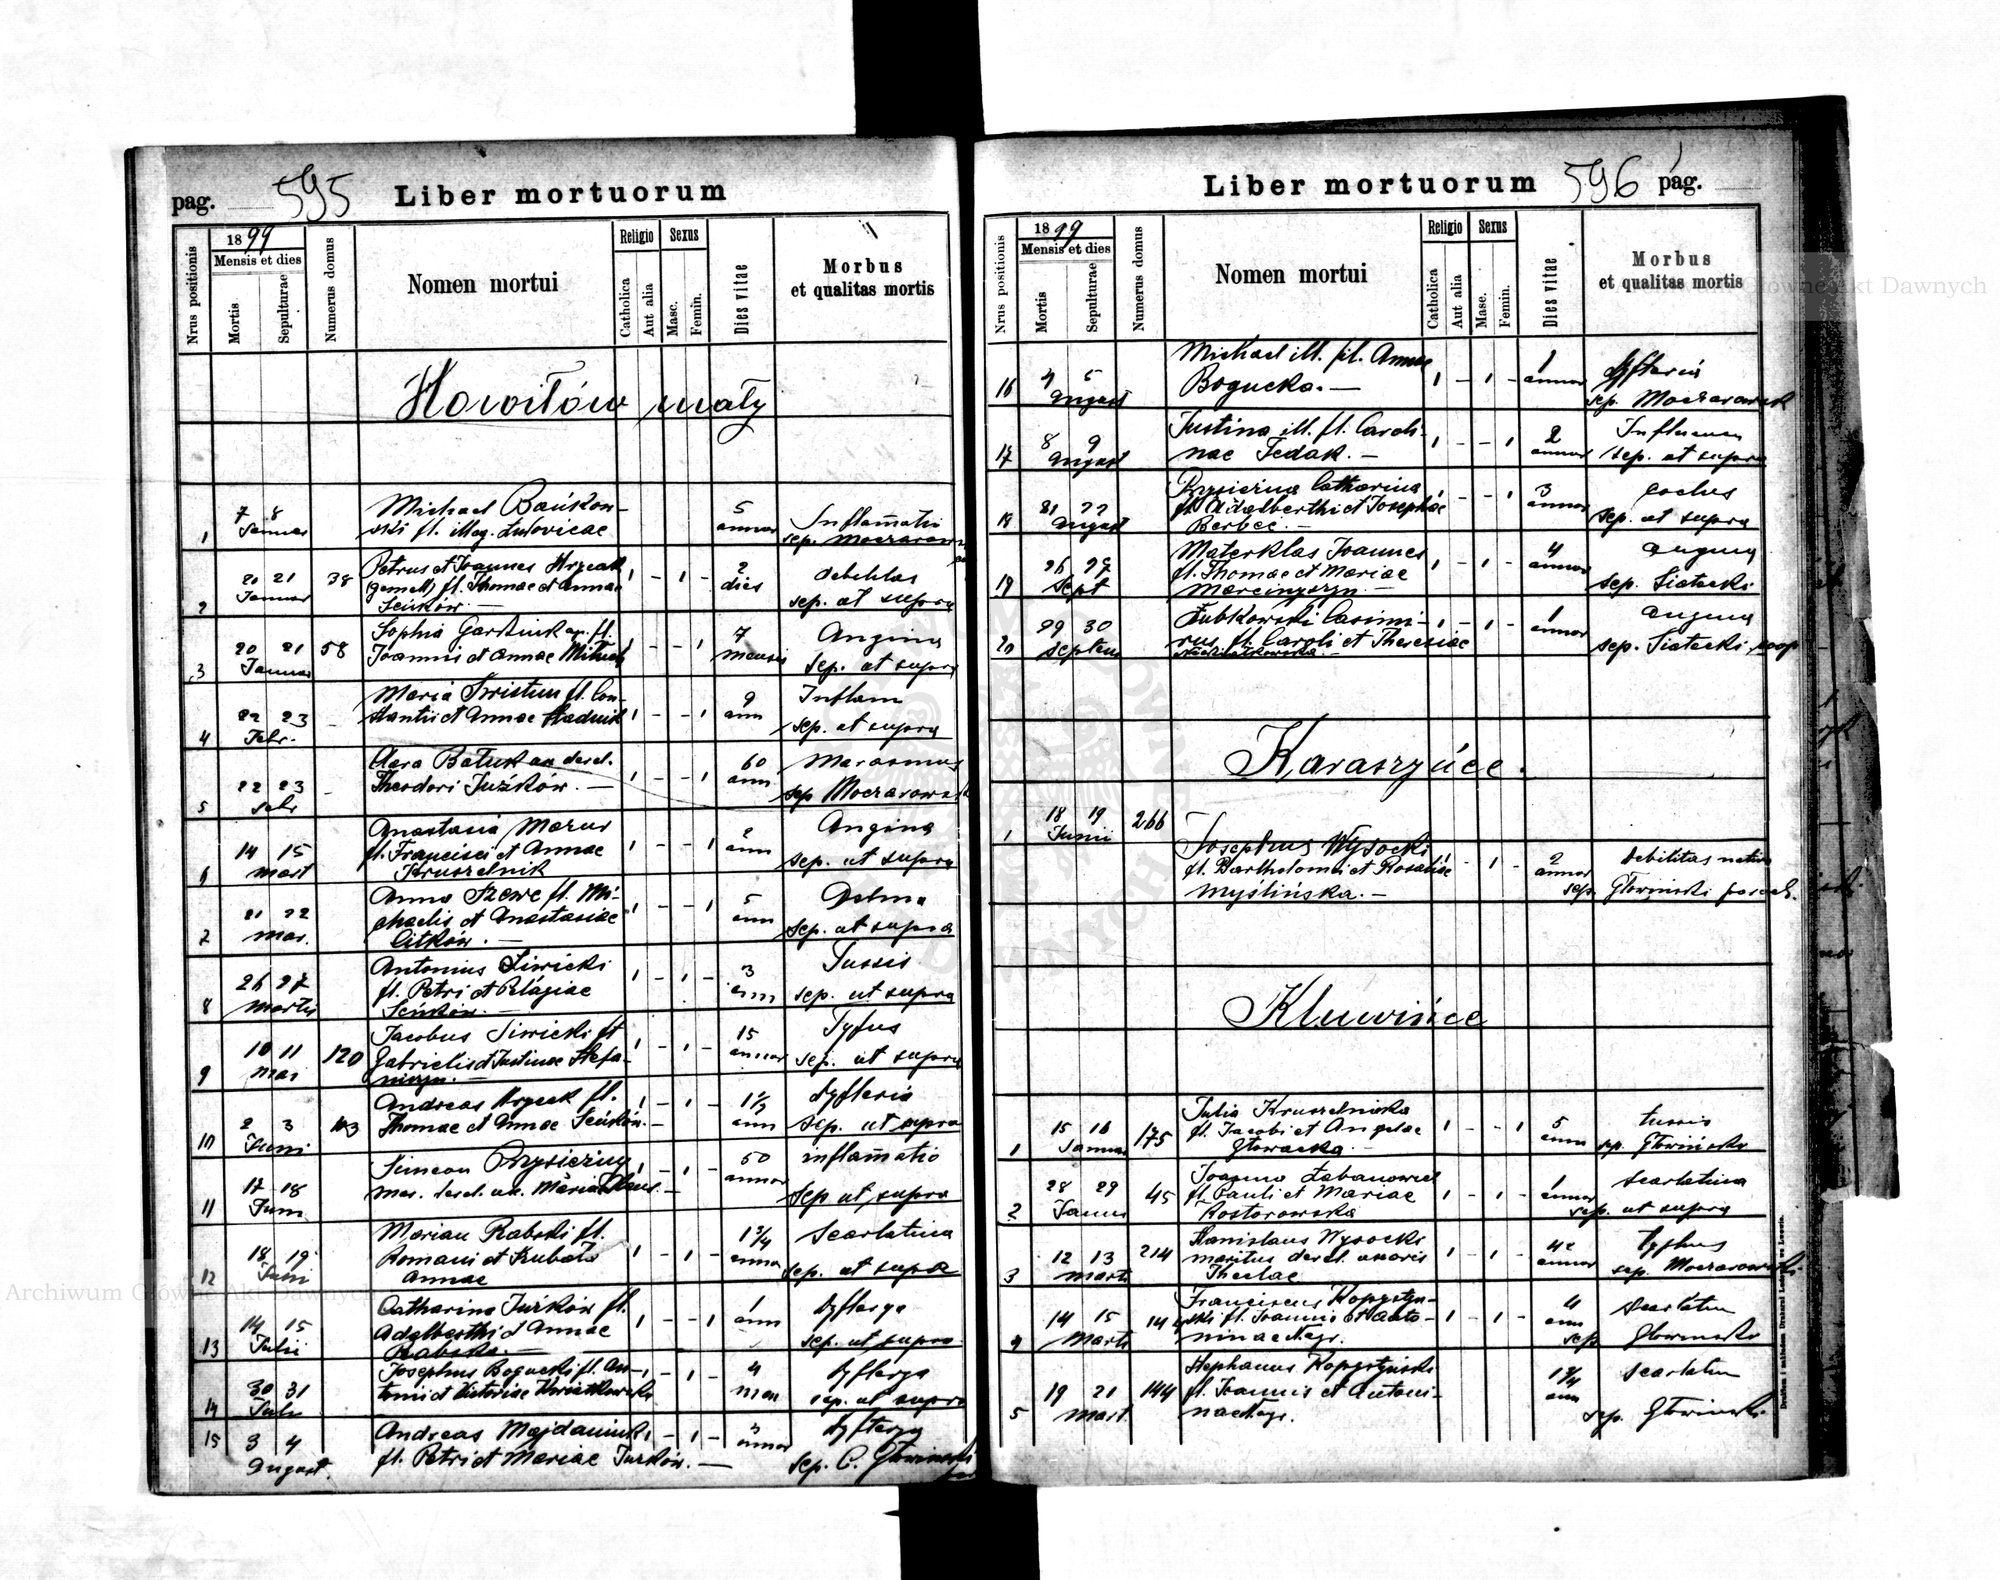 pag. 595 Liber mortuorum
Nrus positionis
1899
Mensis et dies
Mortis
Sepulturae
Numerus domus
Nomen mortui
Religio
Catholica
Aut alia
Sexus
Masc.
Femin.
Dies vitae
Morbus
et qualitas mortis
Howiłów mały
1 7 8 Januar Michael Bańkow-
ski fl. Mag. Ludovicae 5 annor Inflamatio
sep. Moczarowski
2 20 21 Januar 38 Petrus et Joannes Hrycak
(gemelli) fl. Thomae et Annae
Seńków. — 1 - 1 - 2 dies debilitas
sep. ut supra
3 20 21 Januar 58 Sophia fl.
Joannis et Annae 1 - - 1 7 mensis Angina
sep. ut supra
4 22 23 Febr. - Maria fl. Con-
stantii et Annae 1 - - 1 9 ann Inflam
sep. ut supra
5 22 23 Febr - derel.
Theodori Juźków. — 1 - - 1 60 ann Marasmus
sep Moczarowski
6 14 15 Mart Anastasia Mazur
fl. Francisci et Annae
Kruszelnik 1 - - 1 2 ann Angina
sep. ut supra
7 21 22 Mar. Anna Szewc fl. Mi-
chaelis et Anastasiae
Citków. — 1 - - 1 5 ann
sep. ut supra
8 26 27 Martis Antonius Siwicki
fl. Petri et Pelagiae
Seńków. — 1 - 1 - 3 ann Tussis
sep. ut supra
9 10 11 Mai 120 Jacobus Siwicki fl
Gabrielis et Justinae Stefa-
niszyn. — 1 - 1 - 15 annor Tyfus
sep. ut supra
10 2 3 Juni 103 Andreas Hrycak fl.
Thomae et Annae Seńków. — 1 - 1 - 1½ ann dyfteria
sep. ut supra
11 17 18 Juni Simeon Przysiężny
mar. derel. ux. Maria 1 - 1 - 50 annor inflamatio
sep ut supra
12 18 19 Juni Marian Rabski fl.
Romani et Kubata
Annae 1 - 1 - 1¾ annor Scarlatina
sep. ut supra
13 14 15 Julii Catharina Juźków fl.
Adalberthi et Annae
Rabska. — 1 - - 1 1 ann dyfterya
sep. ut supra
14 30 31 Julii Josephus Bogucki fl. An-
tonii et Victoriae Kwiatkowska 1 - 1 - 4 men dyfterya
sep. ut supra
15 3 4 August. Andreas Majdaniuk
fl. Petri et Mariae Jurków. — 1 - 1 - 3 annor dyfterya
sep. C. Głowiński
Liber mortuorum 596 pag.
Nrus positionis
1899
Mensis et dies
Mortis
Sepulturae
Numerus domus
Nomen mortui
Religio
Catholica
Aut alia
Sexus
Masc.
Femin.
Dies vitae
Morbus
et qualitas mortis
16 4 5 August Michael ill. fil. Annae
Bogucka. — 1 - 1 - 1 annor dyfteria
sep. Moczarowski
17 8 9 August Justina ill. fl. Caroli-
nae Fedak. — 1 - - 1 2 annor
sep. ut supra
18 21 22 August Przysiężna Catharina
fl. Adalberthi et Josephae
Berbeć. — 1 - - 1 3 annor
sep. ut supra
19 26 27 Sept Materklas Joannes
fl. Thomae et Mariae
Marcinyszyn. — 1 - 1 - 4 annor angina
sep. Siatecki
20 29 30 Septem Łubkowski Casimi-
rus fl. Caroli et Theresiae 1 - 1 - 1 annor angina
sep. Siatecki, coop
Karaszyńce.
1 18 19 Junii 266 Josephus Wysocki
fl. Bartholomei et Rosaliae
Myślińska. — 1 - 1 - 2 annor debilitas
sep. Głowiński paroch.
Kluwińce
1 15 16 Januar 175 Julia Kruszelnicka
fl. Jacobi et Angelae
Głowacka. — 1 - - 1 5 ann tussis
sep. Głowiński
2 28 29 Januar 45 Joannes Łabanowicz
fl. Pauli et Mariae
Kostorowska 1 - 1 - 1 annor scarlatina
sep. ut supra
3 12 13 Marti 214 Stanislaus Wysocki
maritus derel. uxoris
Theclae 1 - 1 - 42 annor typhus
sep. Moczarowski
4 14 15 Marti 144 Franciscus Kopystyń-
ski fl. Joannis et Anto-
ninae Nagr. 1 - 1 - 4 ann scarlatin
sep Głowiński
5 19 21 Mart. 144 Stephanus Kopystyński
fl. Joannis et Antoni-
nae Nagr. 1¾ ann scarlatin
sep. Głowiński
Archiwum Główne Akt Dawnych
Archiwum Główne Akt Dawnych